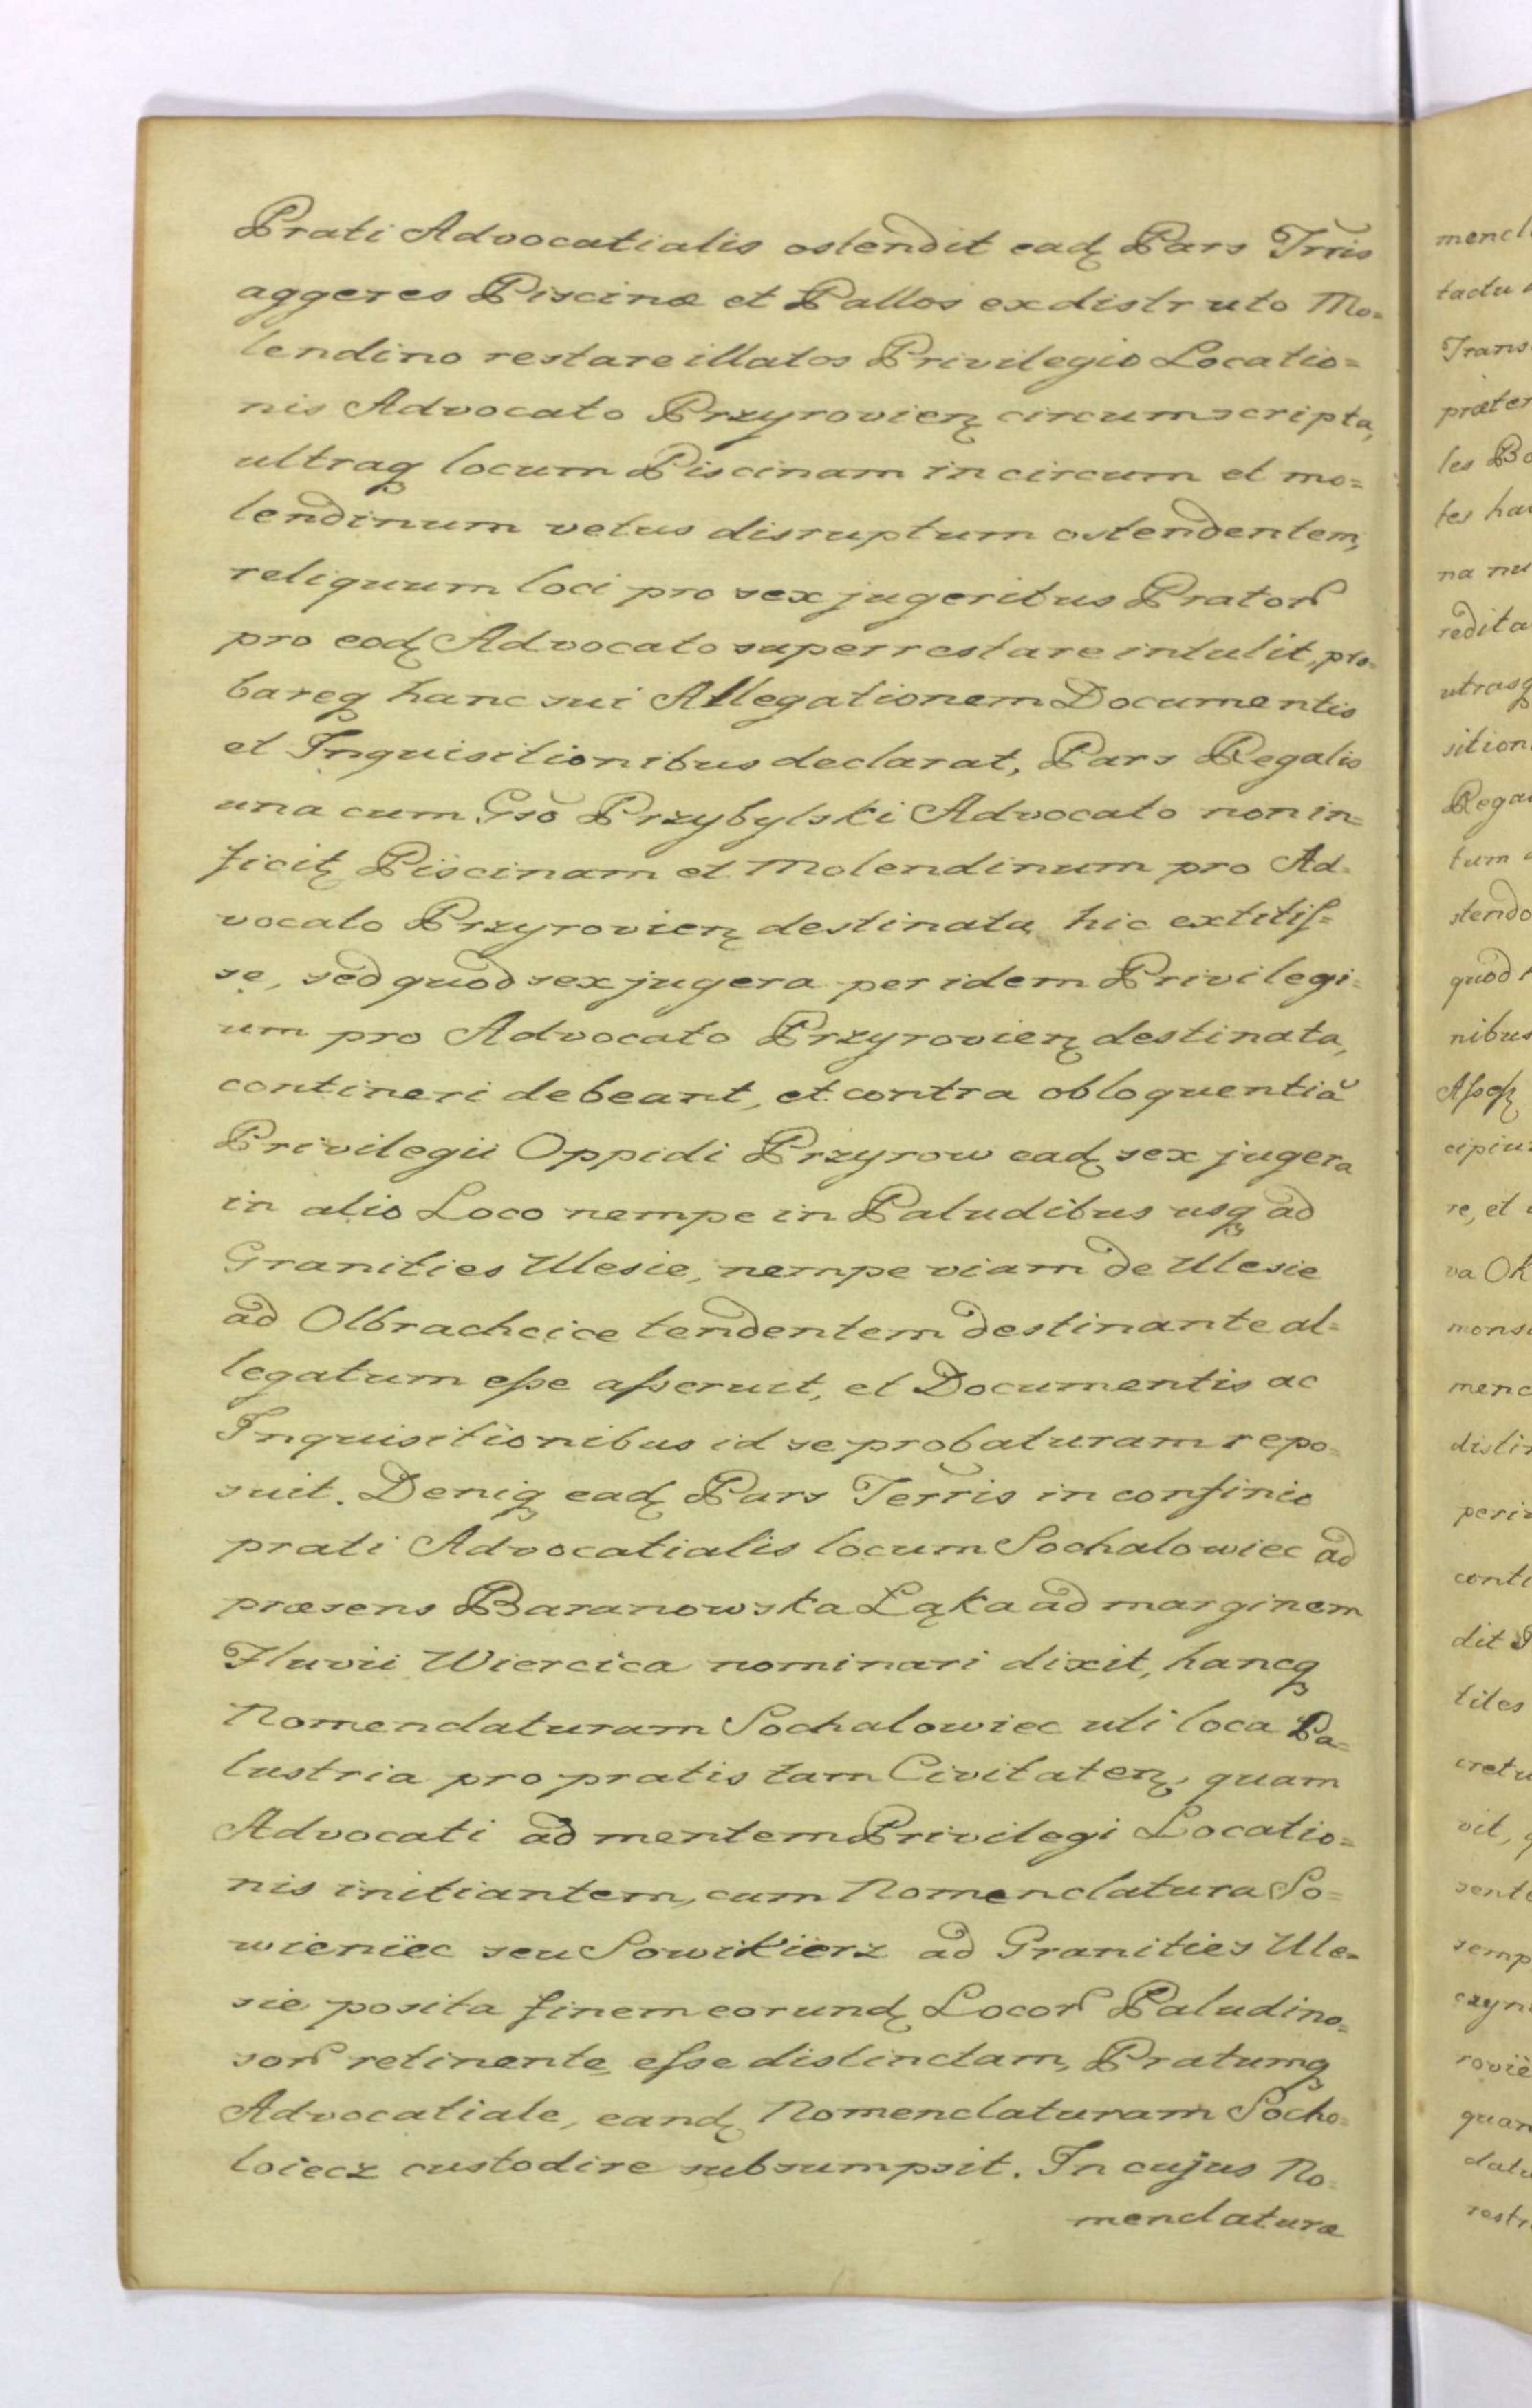 Prati Advocatialis ostendit eadꝫ Pars Trr̃is
aggeres Piscinæ et Pallos ex distruto Mo=
lendino restare illatos Privilegio Locatio=
nis Advocato Przyrovienꝫ circumscripta,
ultraqꝫ locum Piscinam in circum et mo=
lendinum vetus disruptum ostendentem,
reliquum loci pro sex jugeribus Pratorꝭ
pro eodꝫ Advocato superrestare intulit, pro=
bareqꝫ hanc sui Allegationem Documentis
et Inquisitionibus declarat, Pars Regalis
una cum Gsõ Przybylski Advocato non in=
ficitꝫ Piscinam et Molendinum pro Ad=
vocato Przyrovienꝫ destinata hic extitiſ=
se, sed quod sex jugera per idem Privilegi=
um pro Advocato Przyrovienꝫ destinata,
contineri debeant, et contra obloquentiã
Privilegii Oppidi Przyrow eadꝫ sex jugera
in alio Loco nempe in Paludibus usqꝫ ad
Granities Ulesie, nempe viam de Ulesie
ad Olbrachcice tendentem destinante al=
legatum eſse aſseruit, et Documentis ac
Inquisitionibus id se probaturam repo=
suit. Deniqꝫ eadꝫ Pars Terr̃is in confinio
prati Advocatialis locum Sochalowiec ad
præsens Baranowska Łąka ad marginem
Fluvii Wiercica nominari dixit, hancqꝫ
Nomenclaturam Sochalowiec uti loca Pa=
lustria pro pratis tam Civitatenꝫ, quam
Advocati ad mentem Privilegi Locatio=
nis initiantem, cum Nomenclatura So=
wieniec seu Sowikierz ad Granities Ule=
sie posita finem eorundꝫ Locorꝭ Paludino=
sorꝭ retinente, eſse distinctam, Pratumqꝫ
Advocatiale, eandꝫ Nomenclaturam Socho=
loiecz custodire subsumpsit. In cujus No=
menclaturæ
mencl
tactu
Trans
præter
les
tes
na
redita
utrasqꝫ
sition
Rega
tum
stendo
quod
nibus
cipiu
re, et
va
mons
menc
disti
peri
conti
dit
tiles
cretu
vit,
sente
semp
czyn
rovie
quam
datu
restr